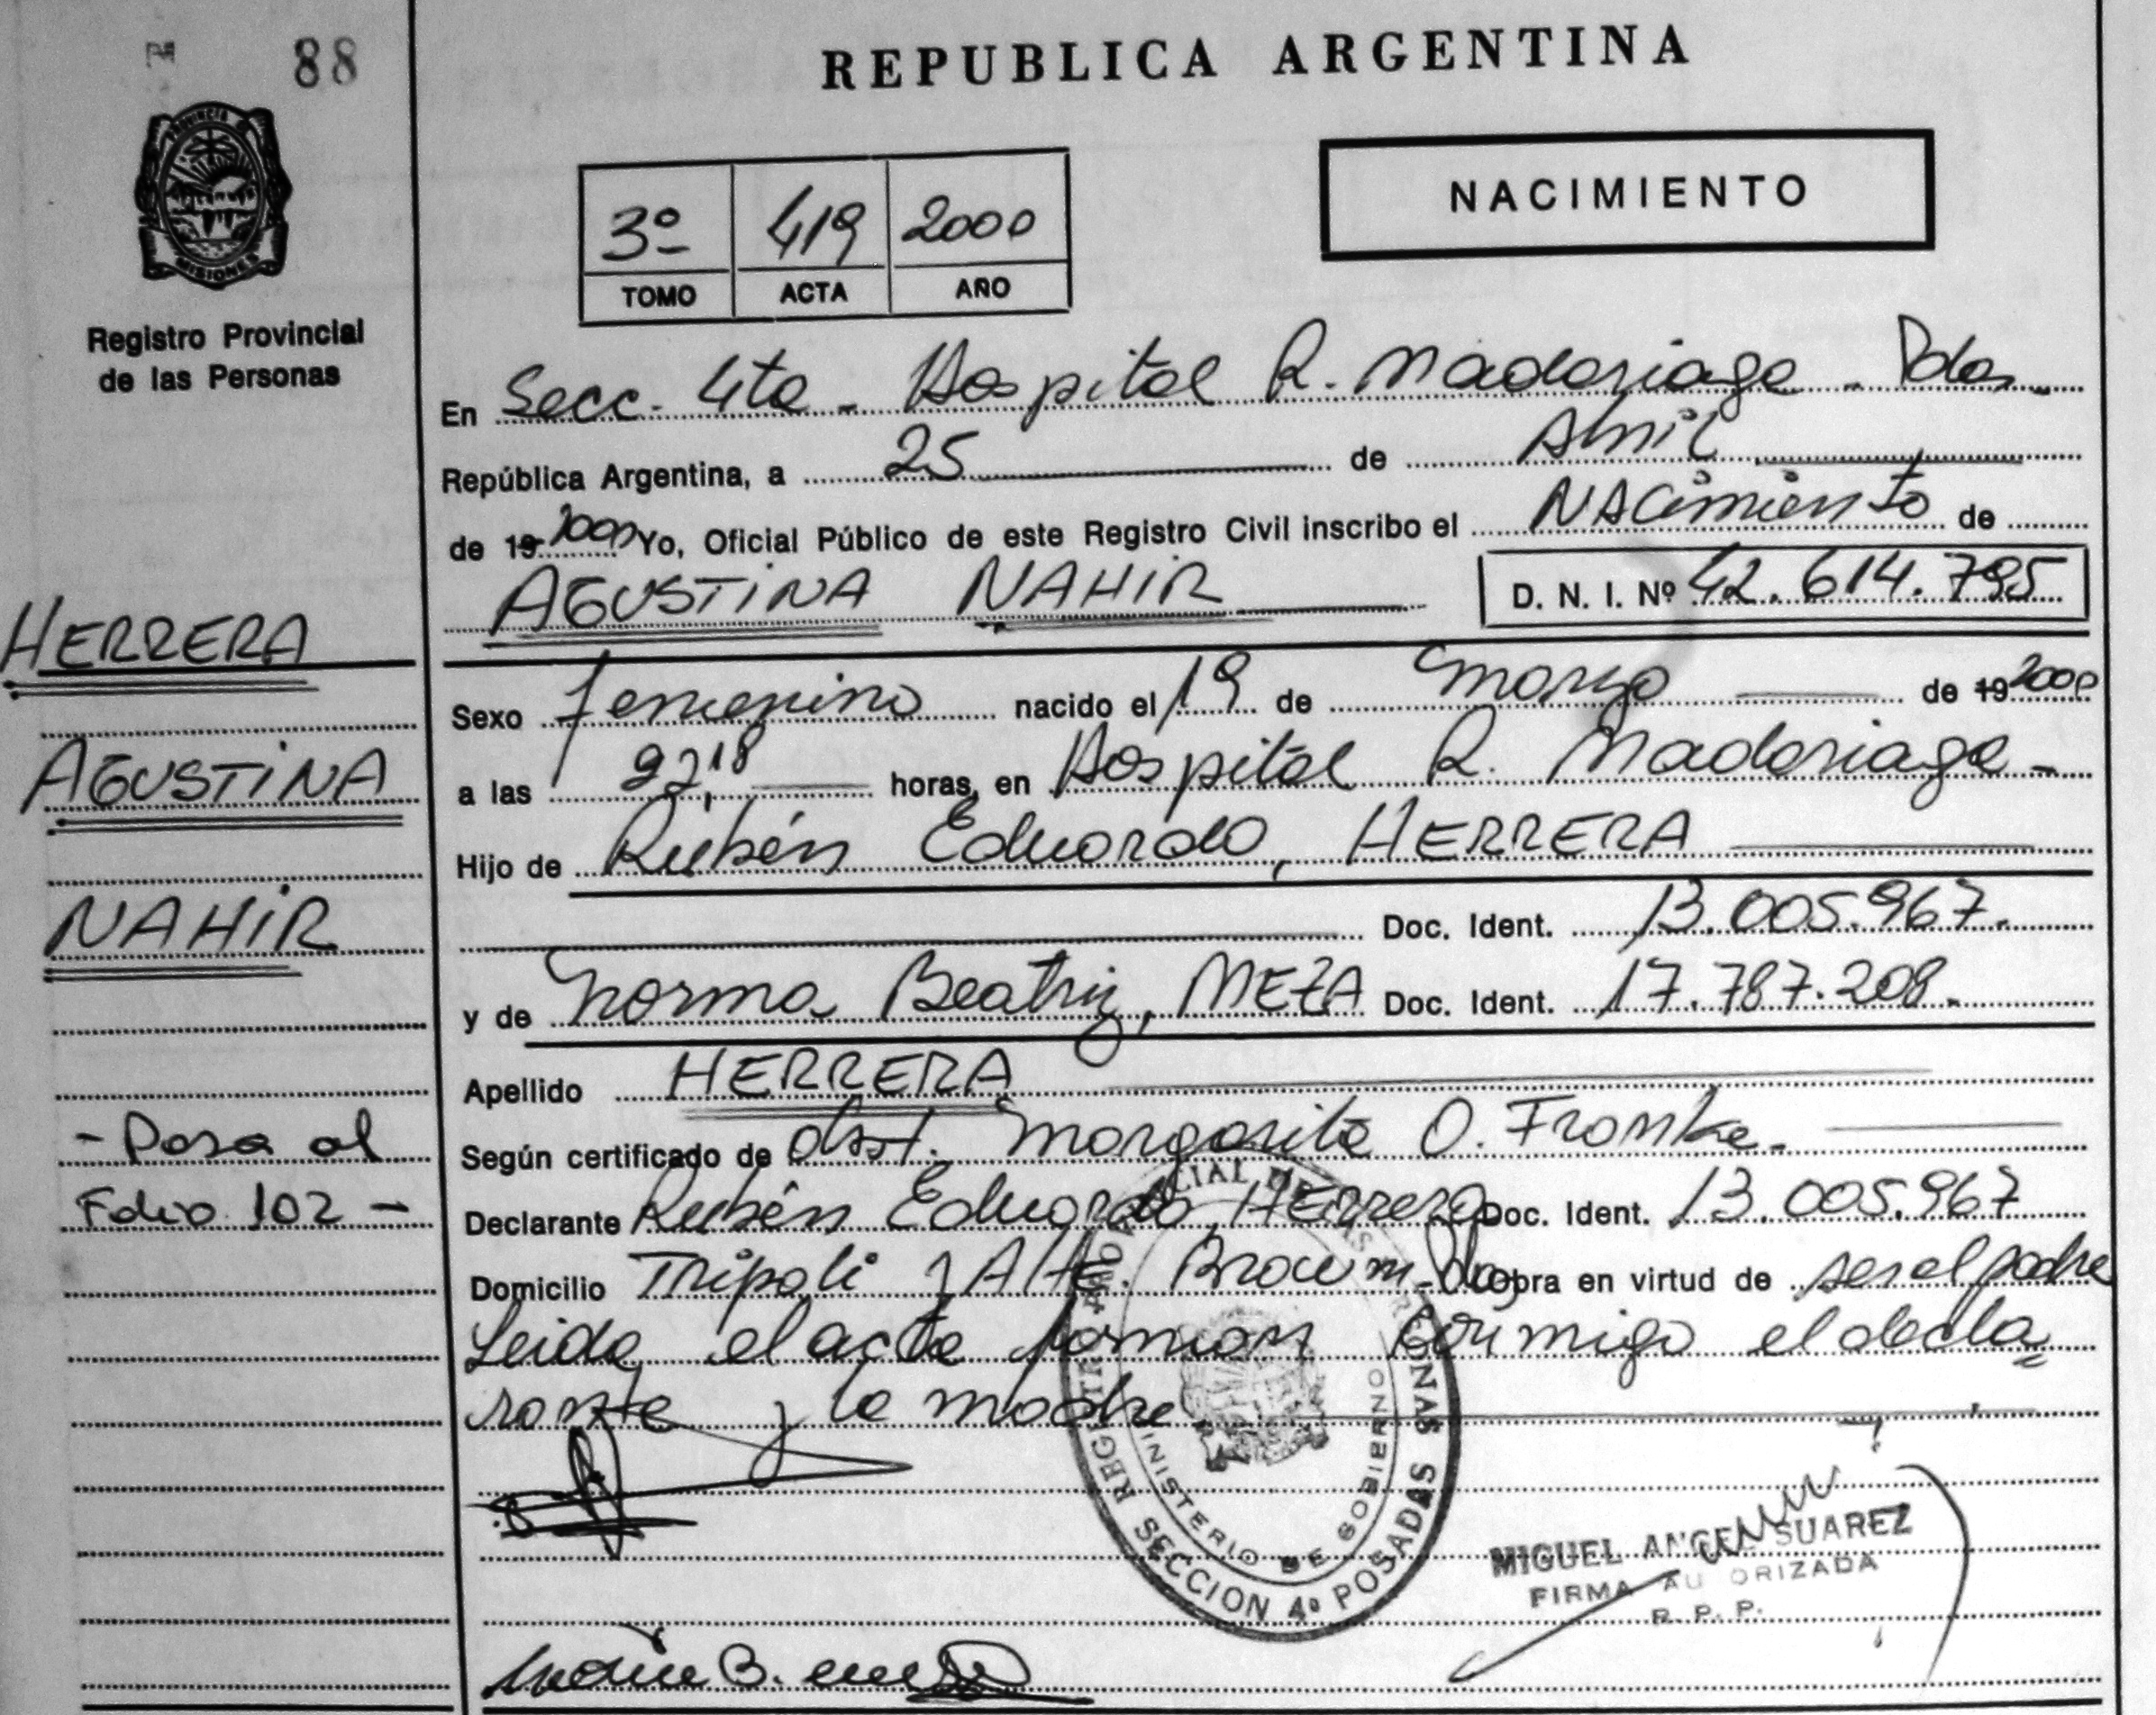 88
REPUBLICA ARGENTINA
PROVINCIA DE
MISIONES
Registro Provincial
de las Personas
3º 419 2000
TOMO ACTA AÑO
NACIMIENTO
En Secc. 4ta - Hospital R. Madariaga - Pdas.
República Argentina, a 25 de Abril
de 19 2000 Yo, Oficial Público de este Registro Civil inscribo el Nacimiento de
AGUSTINA NAHIR D. N. I. Nº 42.614.795
HERRERA
AGUSTINA
NAHIR
- Pasa al
Folio 102 -
Sexo femenino nacido el 19 de marzo de 19 2000
a las 22,18 horas, en Hospital R. Madariaga -
Hijo de Rubén Eduardo, HERRERA
Doc. Ident. 13.005.967.
y de Norma Beatriz, MEZA Doc. Ident. 17.787.208.
Apellido HERRERA
Según certificado de obst. Margarita O. Fromke.
Declarante Rubén Eduardo, HERRERA Doc. Ident. 13.005.967
Domicilio Tripoli y Alte. Brown - Pdas Obra en virtud de ser el padre
Leida el acta forman conmigo el decla=
rante y la madre
REGISTRO PROVINCIAL DE LAS PERSONAS
MINISTERIO DE GOBIERNO
SECCION 4º POSADAS
MIGUEL ANGEL SUAREZ
FIRMA AUTORIZADA
R. P. P.